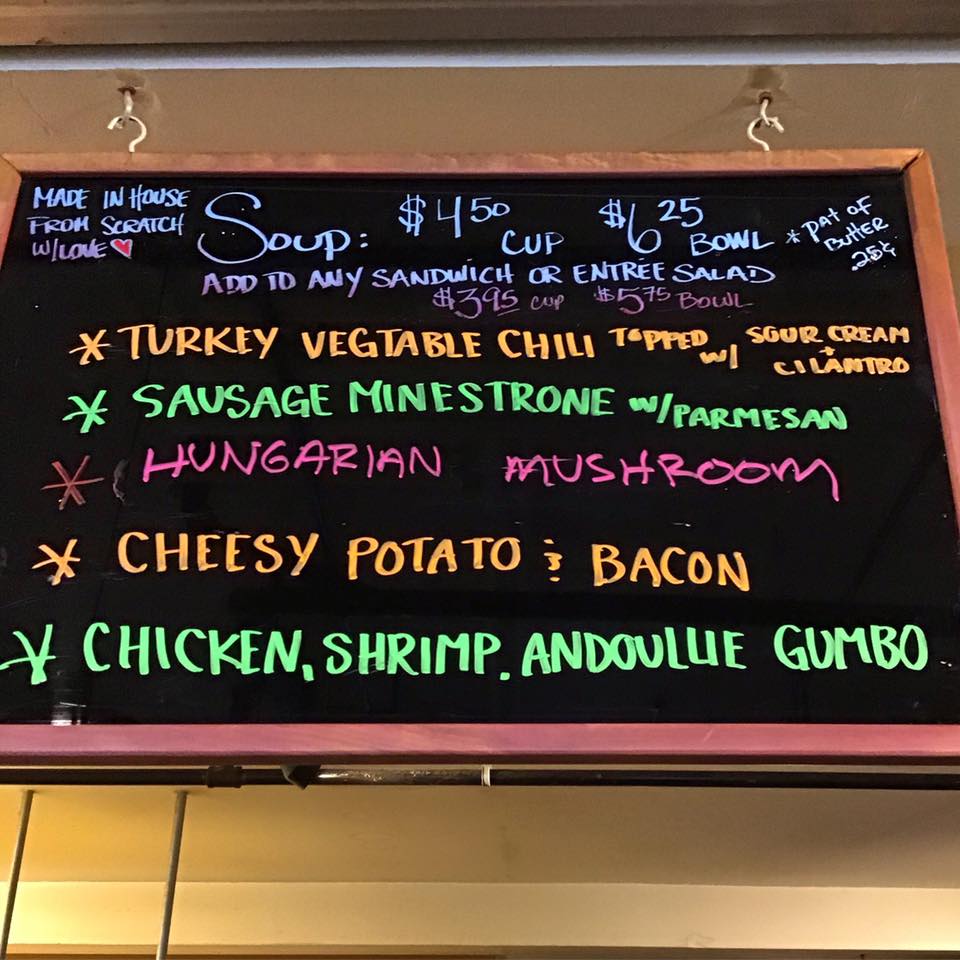 MADE IN HOUSE
FROM SCRATCH
W/LOVE ♥
SOUP: $4.50 CUP $6.25 BOWL
* PAT OF
BUTTER
.25¢
ADD TO ANY SANDWICH OR ENTRÉE SALAD
$3.95 CUP $5.75 BOWL
* TURKEY VEGTABLE CHILI TOPPED W/ SOUR CREAM + CILANTRO
* SAUSAGE MINESTRONE W/PARMESAN
* HUNGARIAN MUSHROOM
* CHEESY POTATO & BACON
* CHICKEN, SHRIMP, ANDOULLIE GUMBO